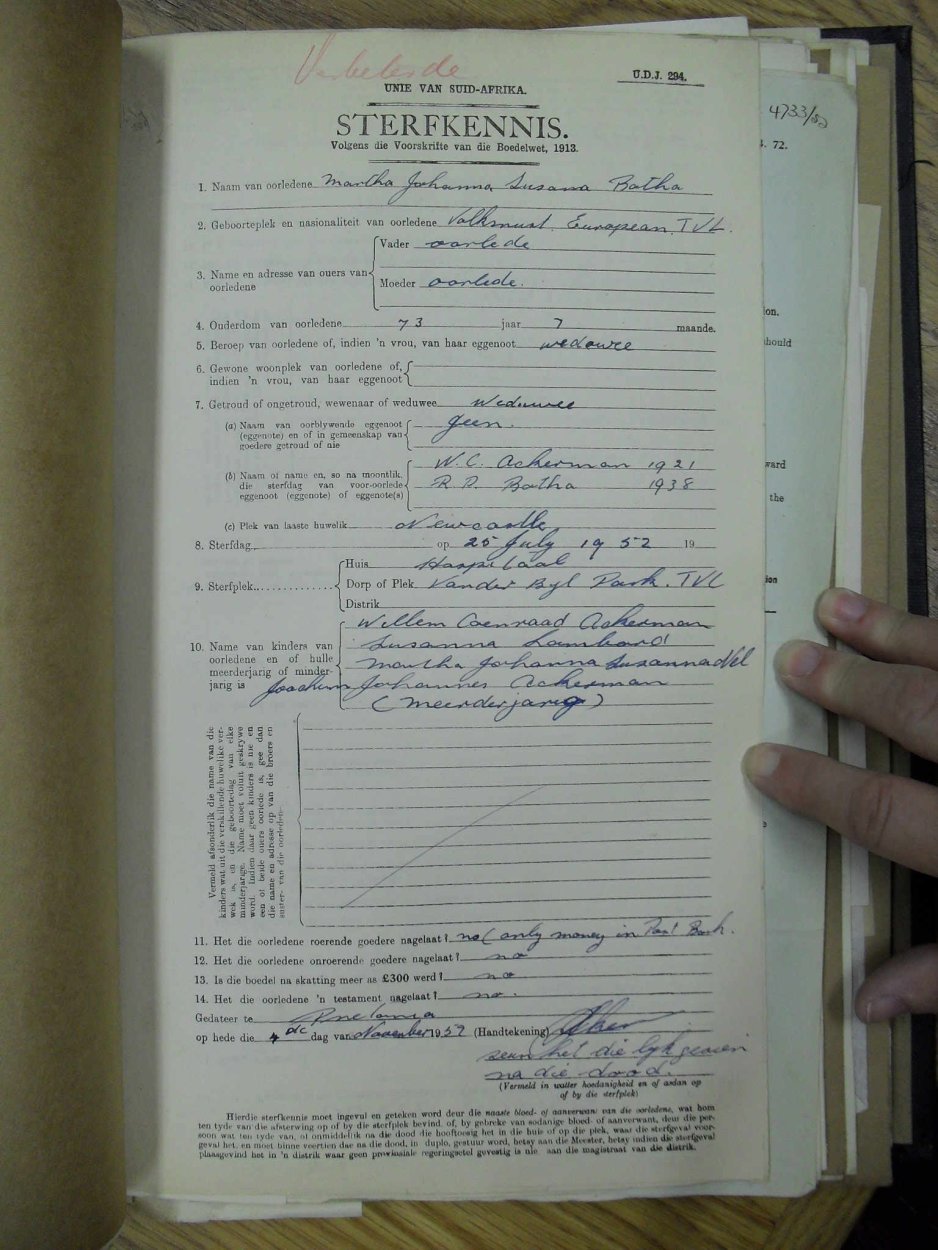 Verbeterde
U.D.J. 294.
UNIE VAN SUID-AFRIKA.
4733/52
STERFKENNIS.
Volgens die Voorskrifte van die Boedelwet, 1913.
. 72.
1. Naam van oorledene Martha Johanna Susana Botha
2. Geboorteplek en nasionaliteit van oorledene Volksrust European TVL.
3. Name en adresse van ouers van oorledene
Vader oorlede
Moeder oorlede.
4. Ouderdom van oorledene 73 jaar 7 maande.
5. Beroep van oorledene of, indien 'n vrou, van haar eggenoot weduwee
6. Gewone woonplek van oorledene of,
indien 'n vrou, van haar eggenoot
7. Getroud of ongetroud, wewenaar of weduwee Weduwee
(a) Naam van oorblywende eggenoot
(eggenote) en of in gemeenskap van
goedere getroud of nie
geen.
(b) Naam of name en, so na moontlik,
die sterfdag van voor-oorlede
eggenoot (eggenote) of eggenote(s)
W. C. Ackerman 1921
R. D. Botha 1938
(c) Plek van laaste huwelik Newcastle
8. Sterfdag op 25 July 1952 19
9. Sterfplek
Huis Hospitaal
Dorp of Plek Van der Byl Park. TVL
Distrik
10. Name van kinders van
oorledene en of hulle
meerderjarig of minder-
jarig is
Willem Coenraad Ackerman
Susanna Lombard
Martha Johanna Susanna Nel
Joachim Johannes Ackerman
(meerderjarig)
Vermeld afsonderlik die name van die
kinders wat uit die verskillende huwelike ver-
wek is, en die geboortedag van elke
minderjarige. Name moet voluit geskrywe
word. Indien daar geen kinders is nie en
een of beide ouers oorlede is, gee dan
die name en adresse op van die broers en
susters van die oorledene.
11. Het die oorledene roerende goedere nagelaat? no (only money in Post Bank.
12. Het die oorledene onroerende goedere nagelaat? no
13. Is die boedel na skatting meer as £300 werd? no
14. Het die oorledene 'n testament nagelaat? no.
Gedateer te Pretoria
op hede die 4de dag van November 1952 (Handtekening)
seun het die lyk gesien
na die dood.
(Vermeld in watter hoedanigheid en of asdan op
of by die sterfplek)
Hierdie sterfkennis moet ingevul en geteken word deur die naaste bloed- of aanverwant van die oorledene, wat hom
ten tyde van die afsterwing op of by die sterfplek bevind of, by gebreke van sodanige bloed- of aanverwant, deur die per-
soon wat ten tyde van, of onmiddellik na die dood die hooftoesig het in die huis of op die plek, waar die sterfgeval voor-
geval het, en moet binne veertien dae na die dood, in duplo, gestuur word, hetsy aan die Meester, hetsy indien die sterfgeval
plaasgevind het in 'n distrik waar geen provinsiale regeringsetel gevestig is nie aan die magistraat van die distrik.